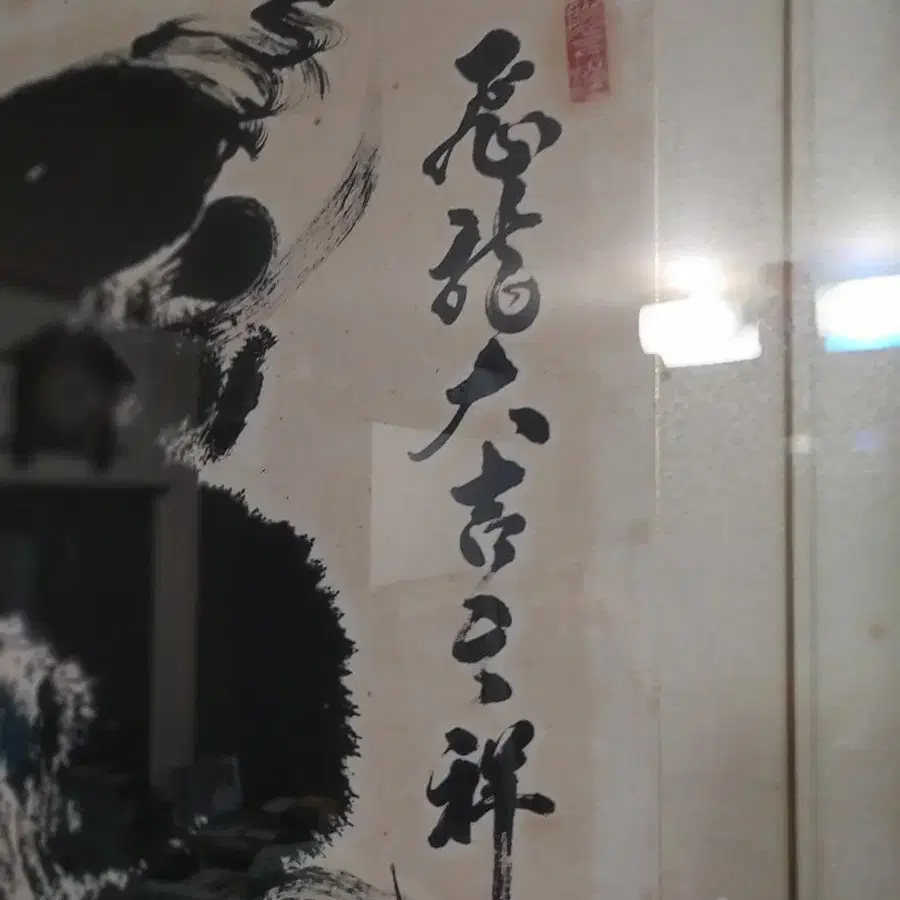 龍大吉之祥